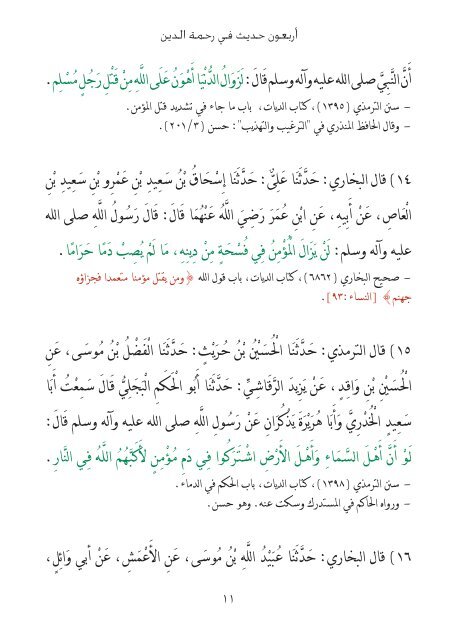 أربعون حديث في رحمة الدين
أَنَّ النَّبِيَّ صلى الله عليه وآله وسلم قَالَ: لَزَوَالُ الدُّنْيَا أَهْوَنُ عَلَى اللَّهِ مِنْ قَتْلِ رَجُلٍ مُسْلِمٍ .
– سنن الترمذي (١٣٩٥)، كتاب الديات، باب ما جاء في تشديد قتل المؤمن.
– وقال الحافظ المنذري في "الترغيب والتهذيب": حسن (٢٠١/٣).
١٤) قال البخاري: حَدَّثَنَا عَلِيٌّ: حَدَّثَنَا إِسْحَاقُ بْنُ سَعِيدِ بْنِ عَمْرِو بْنِ سَعِيدِ بْنِ
الْعَاصِ، عَنْ أَبِيهِ، عَنِ ابْنِ عُمَرَ رَضِيَ اللَّهُ عَنْهُمَا قَالَ: قَالَ رَسُولُ اللَّهِ صلى الله
عليه وآله وسلم: لَنْ يَزَالَ الْمُؤْمِنُ فِي فُسْحَةٍ مِنْ دِينِهِ، مَا لَمْ يُصِبْ دَمًا حَرَامًا .
– صحيح البخاري (٦٨٦٢)، كتاب الديات، باب قول الله ﴿ومن يقتل مؤمنا متعمدا فجزاؤه
جهنم﴾ [النساء :٩٣].
١٥) قال الترمذي: حَدَّثَنَا الْحُسَيْنُ بْنُ حُرَيْثٍ: حَدَّثَنَا الْفَضْلُ بْنُ مُوسَى، عَنِ
الْحُسَيْنِ بْنِ وَاقِدٍ ، عَنْ يَزِيدَ الرَّقَاشِيِّ: حَدَّثَنَا أَبُو الْحَكَمِ الْبَجَلِيُّ قَالَ سَمِعْتُ أَبَا
سَعِيدٍ الْخُدْرِيَّ وَأَبَا هُرَيْرَةَ يَذْكُرَانِ عَنْ رَسُولِ اللَّهِ صلى الله عليه وآله وسلم قَالَ:
لَوْ أَنَّ أَهْلَ السَّمَاءِ وَأَهْلَ الأَرْضِ اشْتَرَكُوا فِي دَمِ مُؤْمِنٍ لأَكَبَّهُمُ اللَّهُ فِي النَّارِ .
– سنن الترمذي (١٣٩٨)، كتاب الديات، باب الحكم في الدماء.
– ورواه الحاكم في المستدرك وسكت عنه. وهو حسن.
١٦) قال البخاري: حَدَّثَنَا عُبَيْدُ اللَّهِ بْنُ مُوسَى، عَنِ الأَعْمَشِ، عَنْ أَبِي وَائِلٍ،
١١